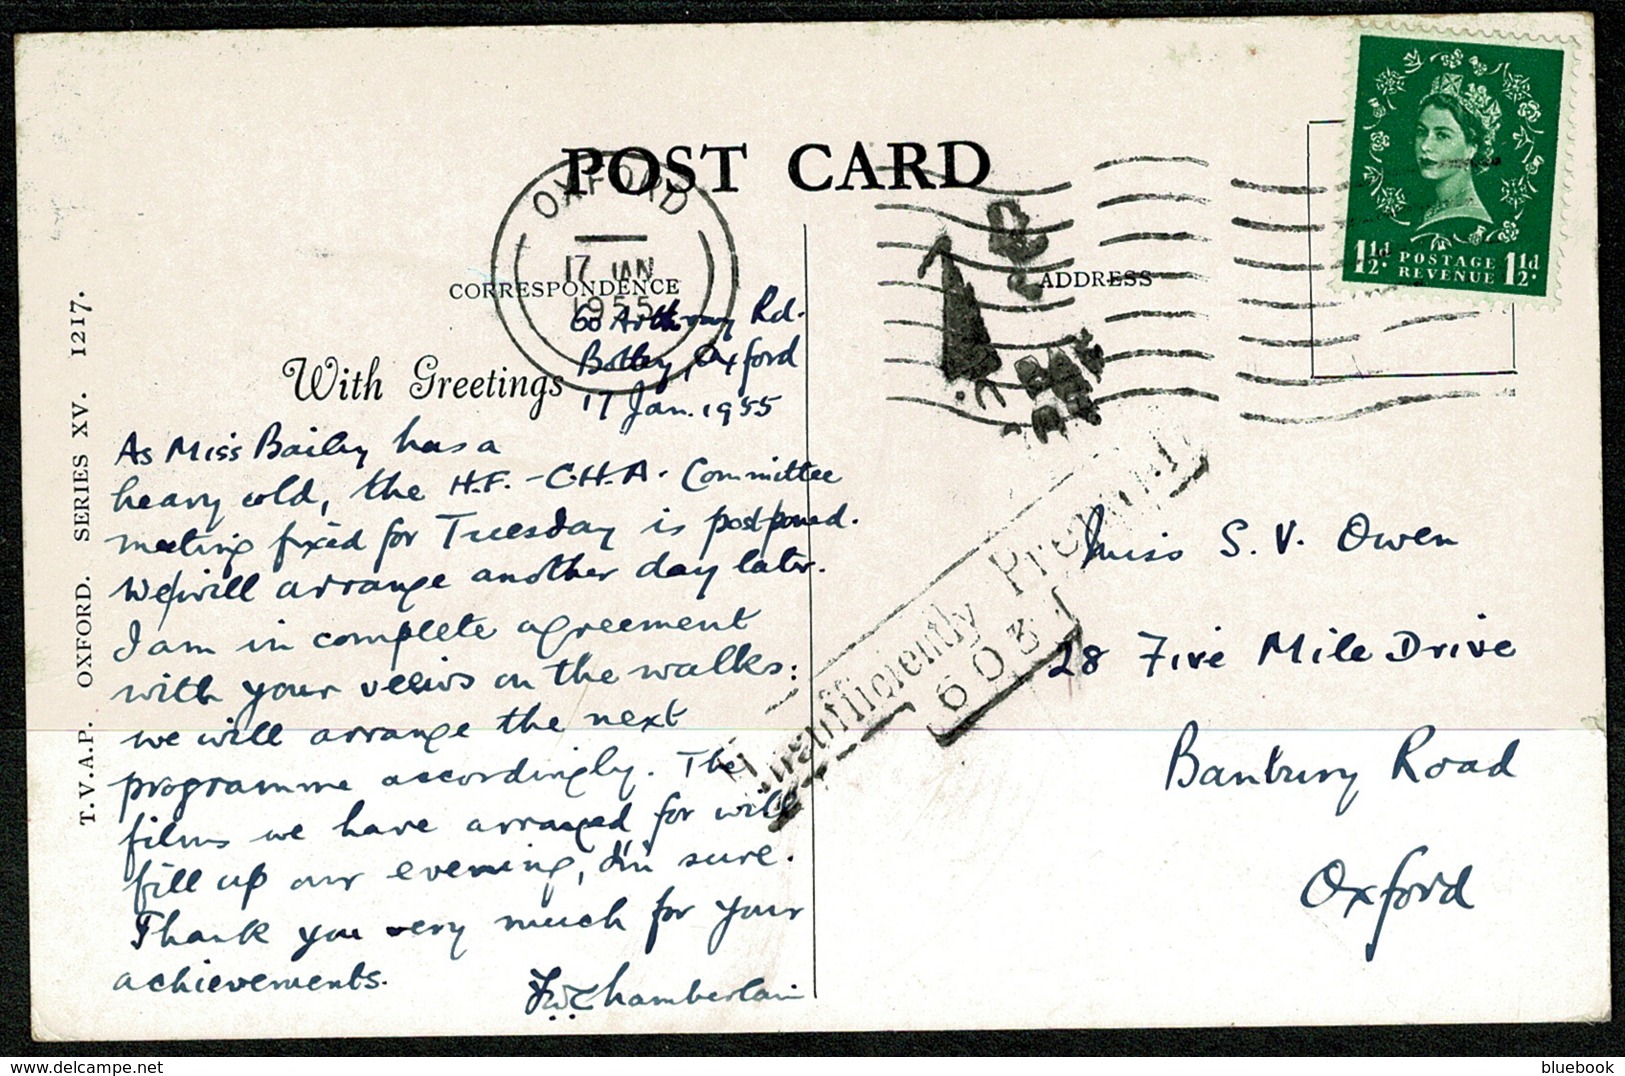 POST CARD
OXFORD
17 JAN
1955
CORRESPONDENCE
ADDRESS
1½d POSTAGE REVENUE 1½d
With Greetings
60 Arthray Rd.
Botley, Oxford
17 Jan. 1955
As Miss Bailey has a
heavy cold, the H.F. - C.H.A. Committee
meeting fixed for Tuesday is postponed.
We will arrange another day later.
I am in complete agreement
with your views on the walks:
we will arrange the next
programme accordingly. The
films we have arranged for will
fill up our evening, I'm sure.
Thank you very much for your
achievements.
Chamberlain
Insufficiently Prepaid
603
Miss S. V. Owen
28 Five Mile Drive
Banbury Road
Oxford
T.V.A.P. OXFORD. SERIES XV. 1217.
bluebook